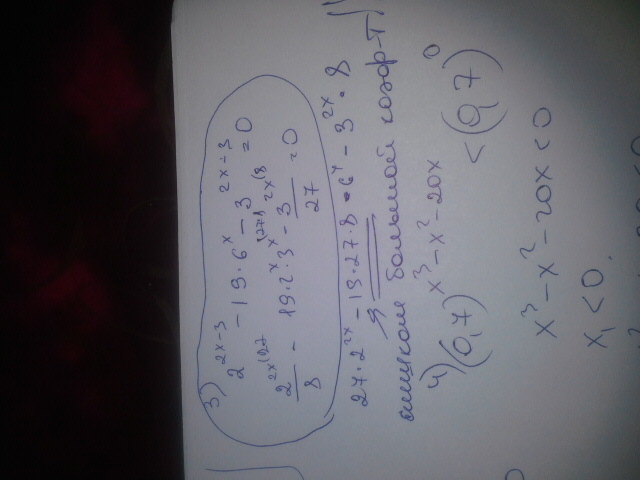 3) 2^{2x-3} - 19·6^x - 3^{2x-3} = 0
2^{2x(27}/8 - 19·2^x·3^{x(27·8} - 3^{2x(8}/27 = 0
27·2^{2x} - 19·27·8·6^x - 3^{2x}·8
слишком большой коэф-т
4) (0,7)^{x^3-x^2-20x} < (0,7)^0
x^3 - x^2 - 20x < 0
x_1 < 0.